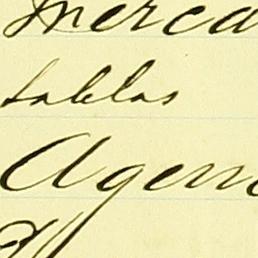 Merca
tablas
Agen